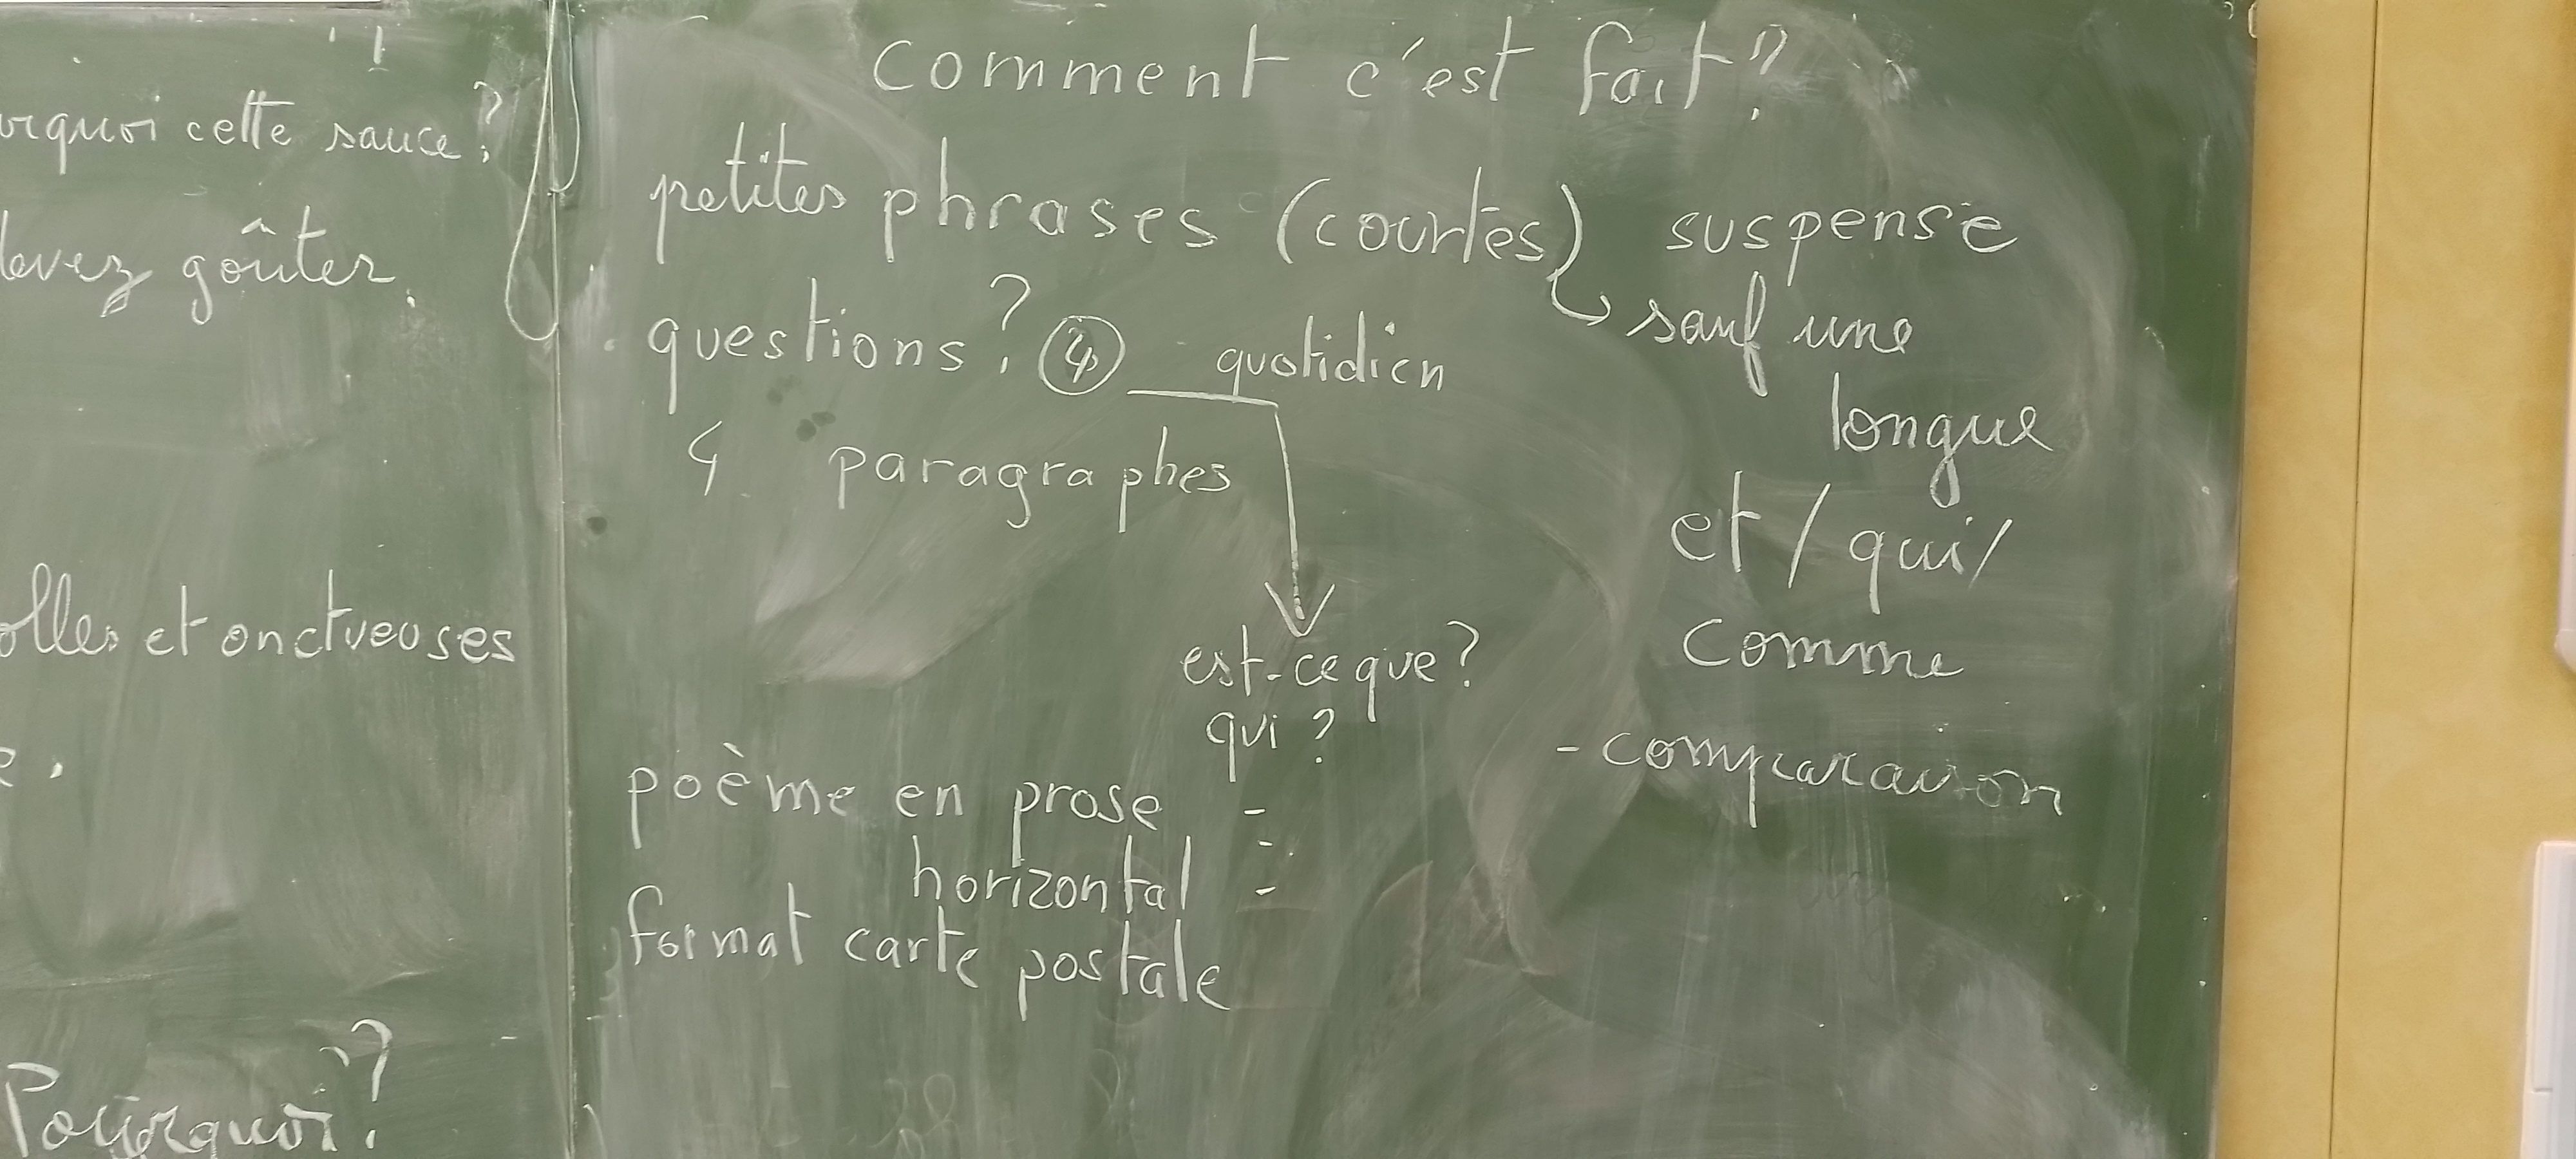 cette sauce?
goûter.
et onctueuses
Pourquoi?
Comment c'est fait?
petites phrases (courtes) suspense
sauf une
longue
questions? ④ quotidien
4 paragraphes
et / qui /
comme
est-ce que?
qui?
- comparaison
poème en prose -
horizontal -
format carte postale